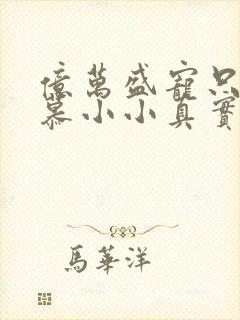 億萬盛寵只
慕小小真實
馬華洋